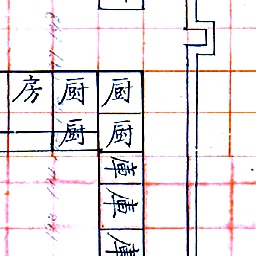 房 厨 厨
厨 厨
庫
庫
庫